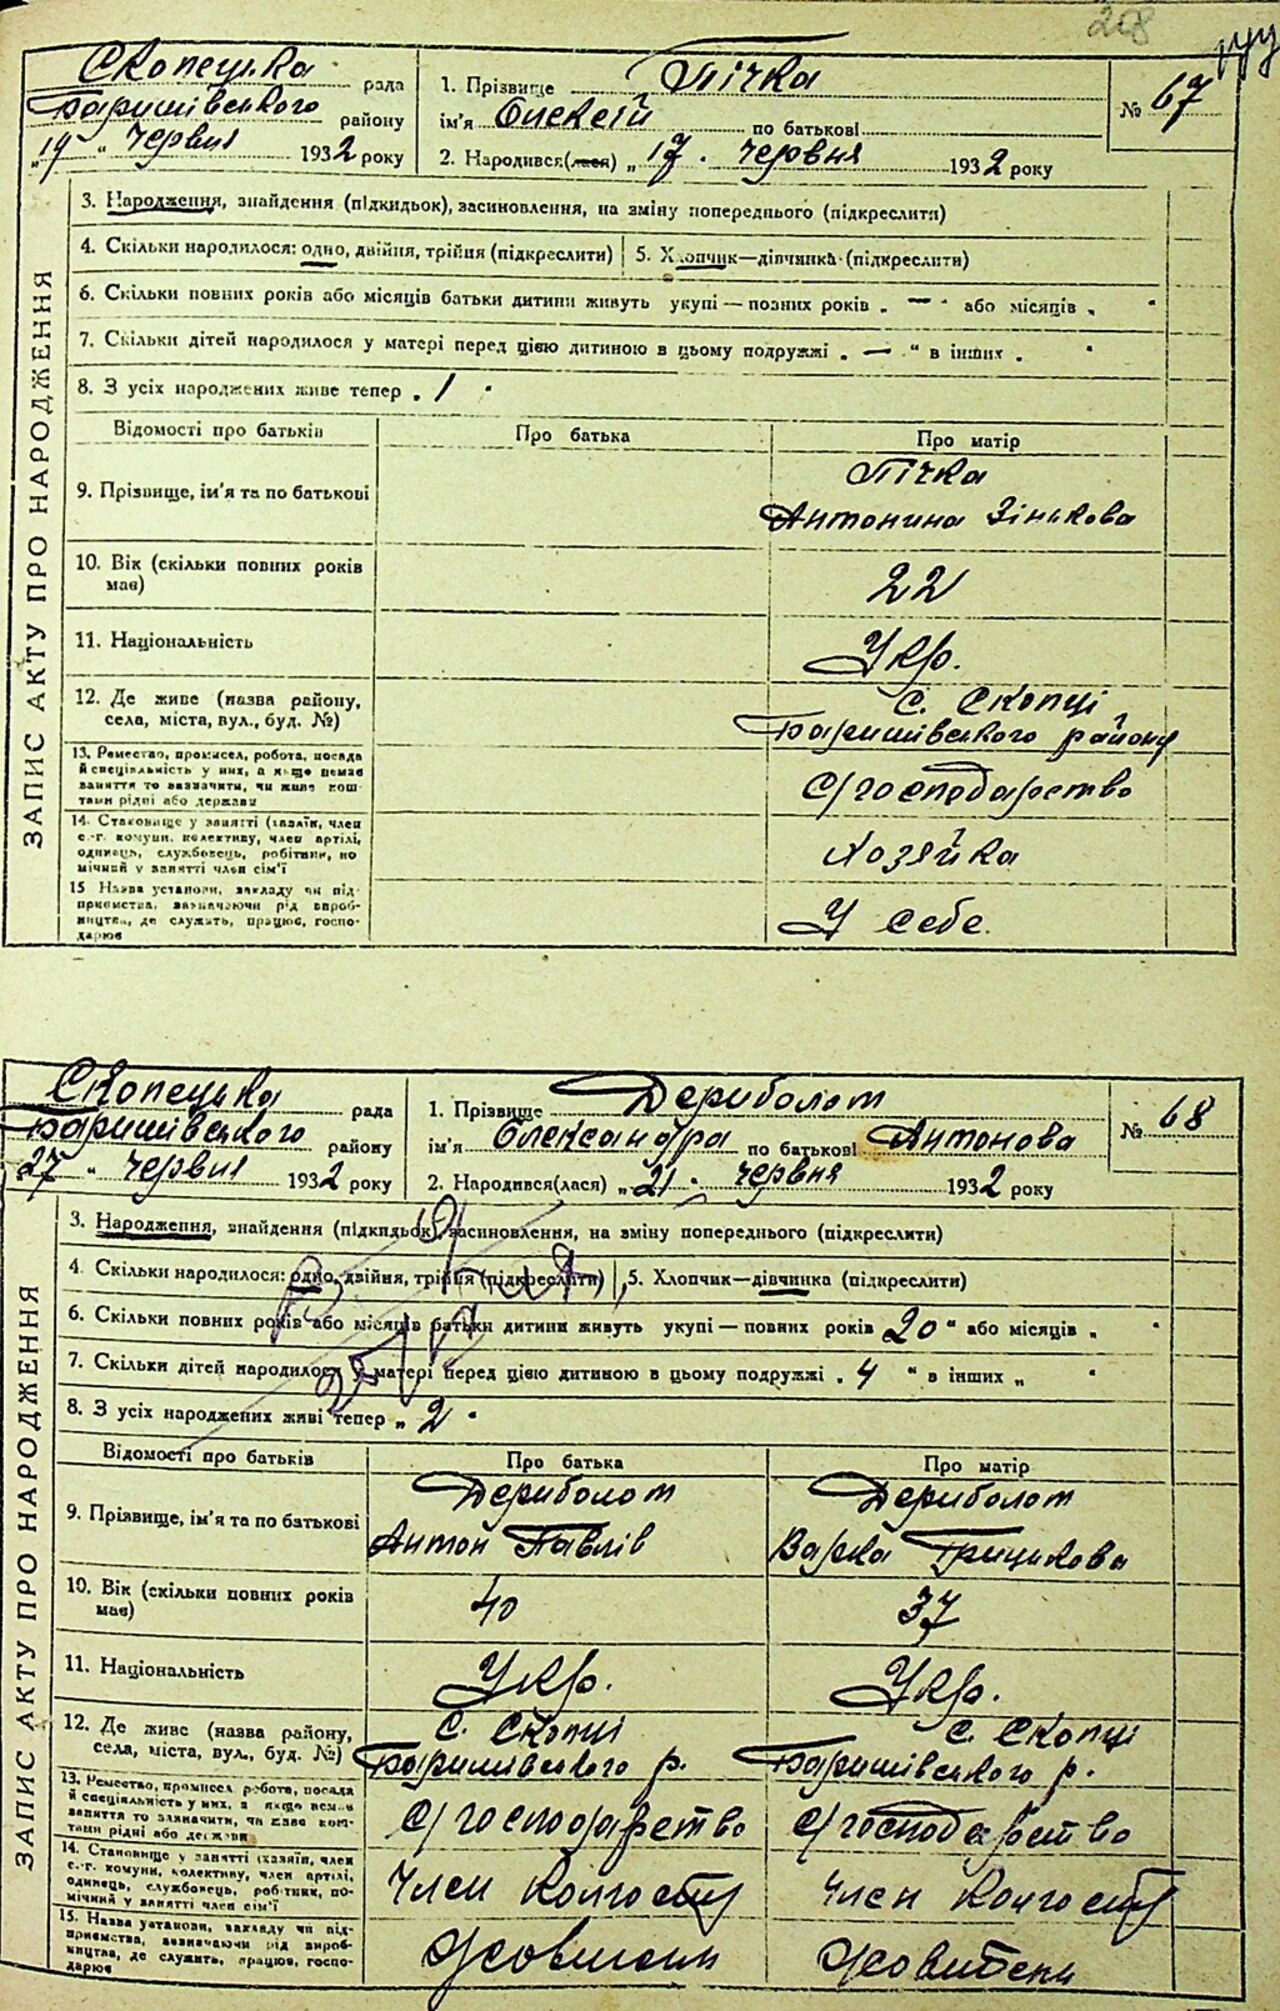 208
Скопецька рада
Баришівського району
„19“ червня 1932 року
1. Прізвище Пічка
ім'я Олексій по батькові
2. Народився(лася) „17. червня 1932 року
№ 67
ЗАПИС АКТУ ПРО НАРОДЖЕННЯ
3. Народження, знайдення (підкидьок), засиновлення, на зміну попереднього (підкреслити)
4. Скільки народилося: одно, двійня, трійня (підкреслити) 5. Хлопчик—дівчинка (підкреслити)
6. Скільки повних років або місяців батьки дитини живуть укупі — повних років „ — “ або місяців „ “
7. Скільки дітей народилося у матері перед цією дитиною в цьому подружжі „ — “ в інших „ “
8. З усіх народжених живе тепер „ 1 “
Відомості про батьків Про батька Про матір
9. Прізвище, ім'я та по батькові Пічка
Антонина Зінькова
10. Вік (скільки повних років
має) 22
11. Національність Укр.
12. Де живе (назва району,
села, міста, вул., буд. №) с. Скопці
Баришівського району
13. Ремество, промисел, робота, посада
й спеціяльність у них, а якщо немає
заняття то зазначити, чи живе кош-
тами рідні або держави С/господарство
14. Становище у занятті (хазяїн, член
с.-г. комуни, колективу, член артілі,
одинець, службовець, робітник, по
мічний у занятті член сім'ї Хозяйка
15 Назва установи, закладу чи під-
приємства, зазначаючи рід вироб-
ництва, де служить, працює, госпо-
дарює У себе.
Скопецька рада
Баришівського району
27 “ червня 1932 року
1. Прізвище Дериболот
ім'я Олександра по батькові Антонова
2. Народився(лася) „21. червня 1932 року
№ 68
ЗАПИС АКТУ ПРО НАРОДЖЕННЯ
3. Народження, знайдення (підкидьок), засиновлення, на зміну попереднього (підкреслити)
4. Скільки народилося: одно, двійня, трійня (підкреслити) 5. Хлопчик—дівчинка (підкреслити)
6. Скільки повних років або місяців батьки дитини живуть укупі — повних років 20 “ або місяців „ “
7. Скільки дітей народилося у матері перед цією дитиною в цьому подружжі „ 4 “ в інших „ “
8. З усіх народжених живі тепер „ 2 “
Відомості про батьків Про батька Про матір
9. Прізвище, ім'я та по батькові Дериболот Дериболот
Антон Павлів Варка Грицькова
10. Вік (скільки повних років
має) 40 37
11. Національність Укр. Укр.
12. Де живе (назва району,
села, міста, вул., буд. №) с. Скопці с. Скопці
Баришівського р. Баришівського р.
13. Ремество, промисел робота, посада
й спеціяльність у них, а якщо немає
заняття то зазначити, чи живе кош-
тами рідні або держави С/господарство С/господарство
14. Становище у занятті (хазяїн, член
с.-г. комуни, колективу, член артілі,
одинець, службовець, робітник, по-
мічний у занятті член сім'ї Член колгоспу Член колгоспу
15. Назва установи, закладу чи під-
приємства, зазначаючи рід вироб-
ництва, де служить, працює, госпо-
дарює